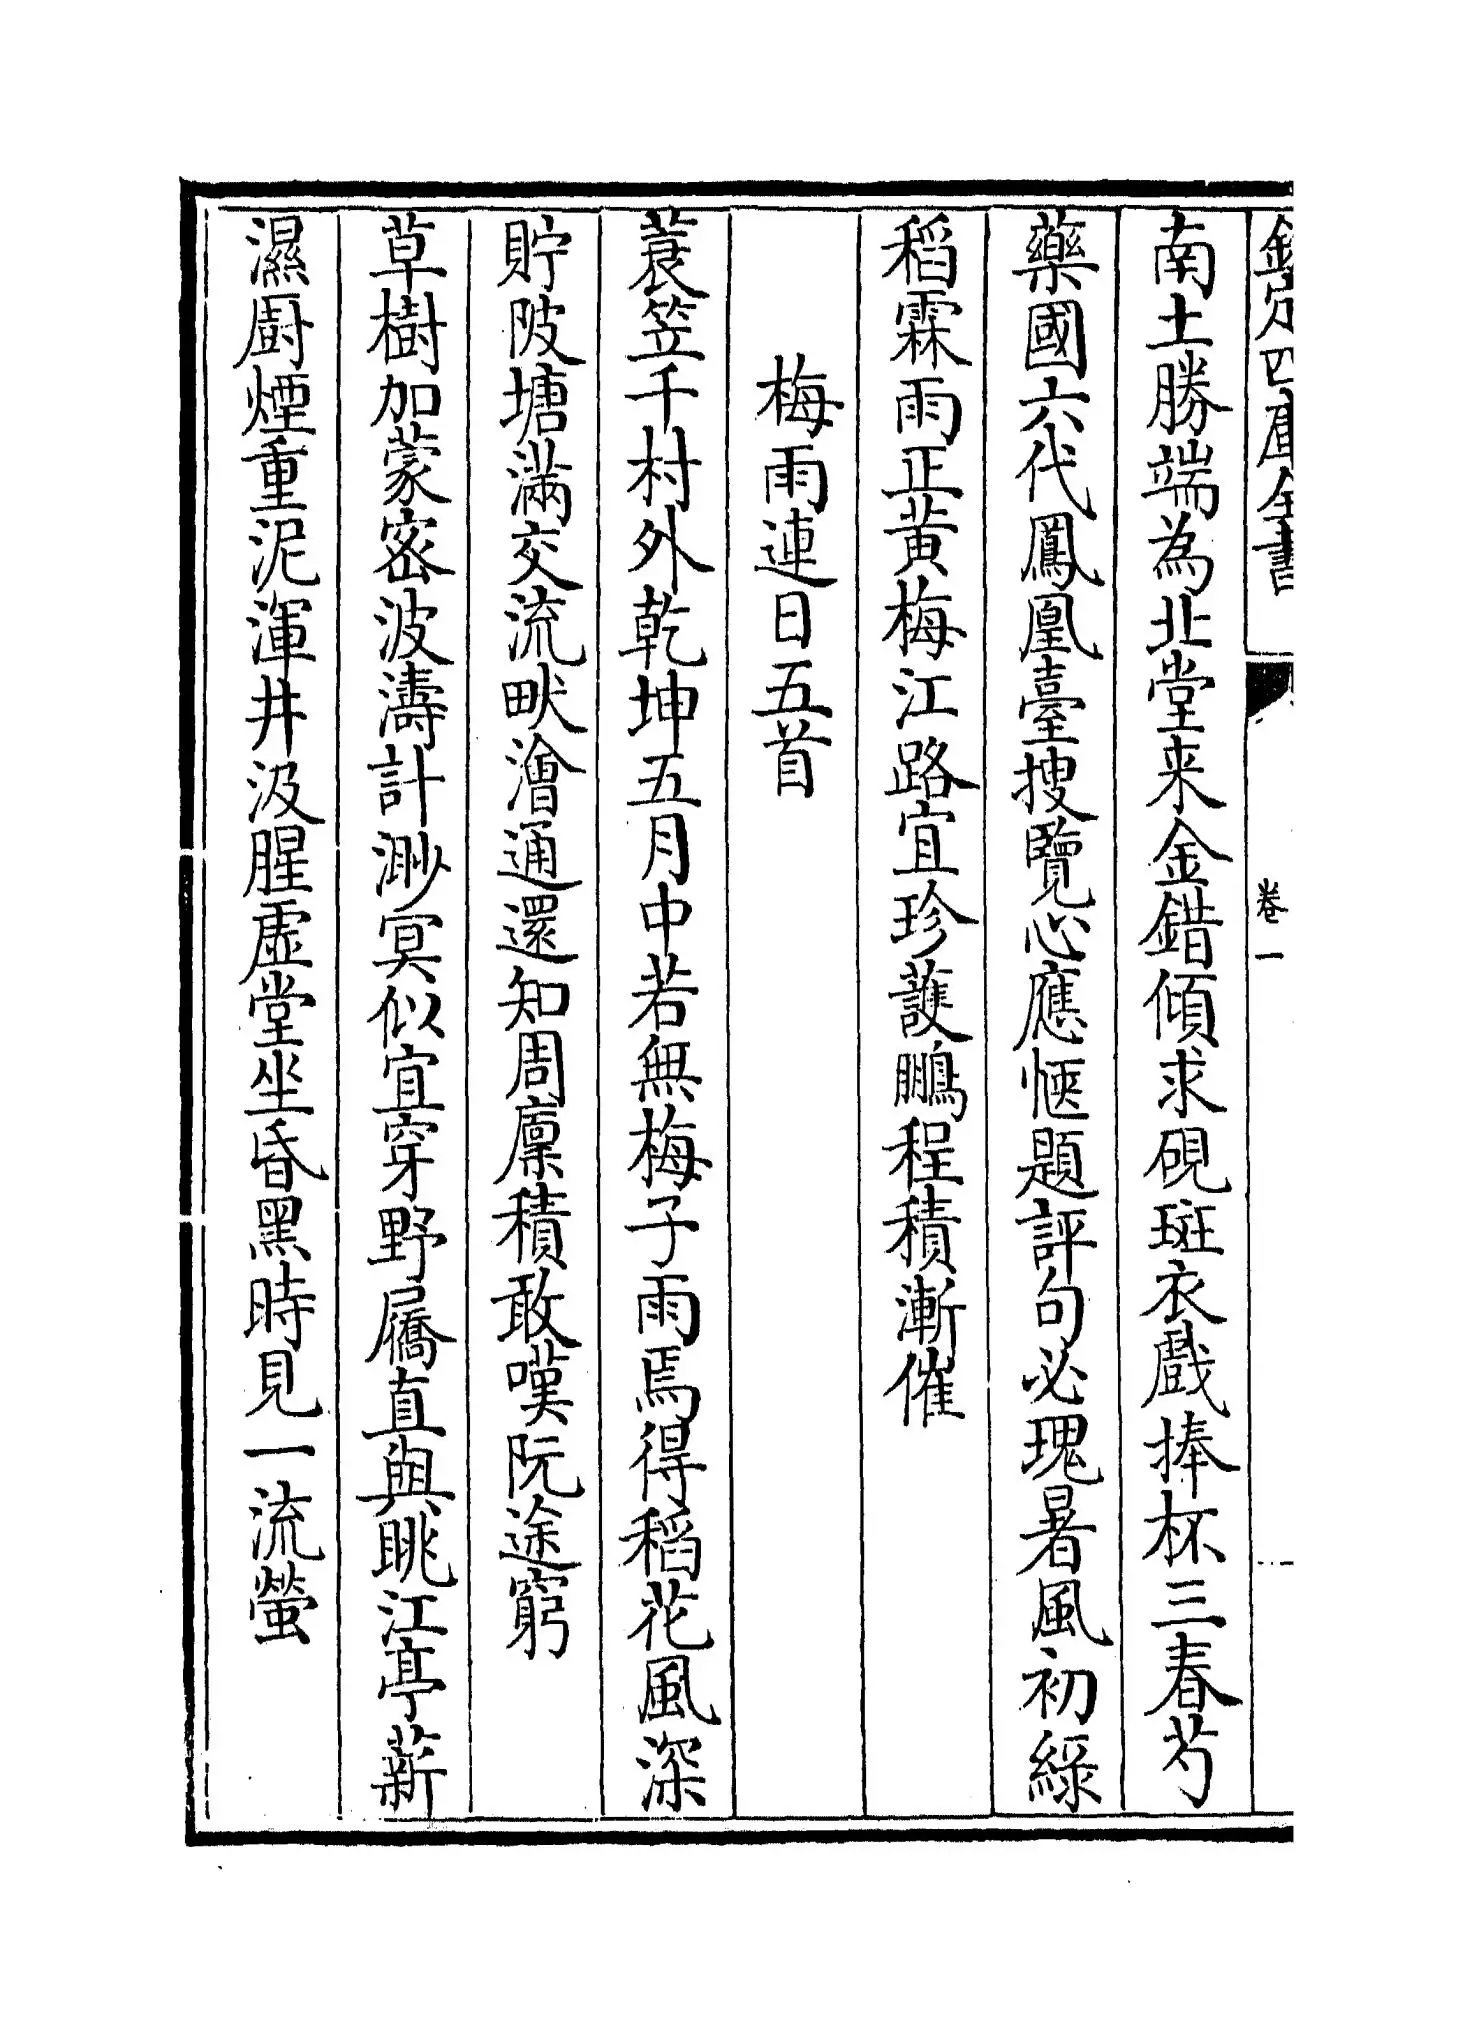 欽定四庫全書
卷一
南土勝端為北堂来金錯傾求硯斑衣戲捧杯三春芍
藥國六代鳳凰臺搜覽心應愜題評句必瑰暑風初綠
稻霖雨正黄梅江路宜珍䕶鵬程積漸催
梅雨連日五首
蓑笠千村外乾坤五月中若無梅子雨焉得稻花風深
貯陂塘滿交流畎澮通還知周廩積敢嘆阮途窮
草樹加蒙宻波濤計渺冥似宜穿野屩直與眺江亭薪
濕厨煙重泥渾井汲腥虚堂坐昏黑時見一流螢